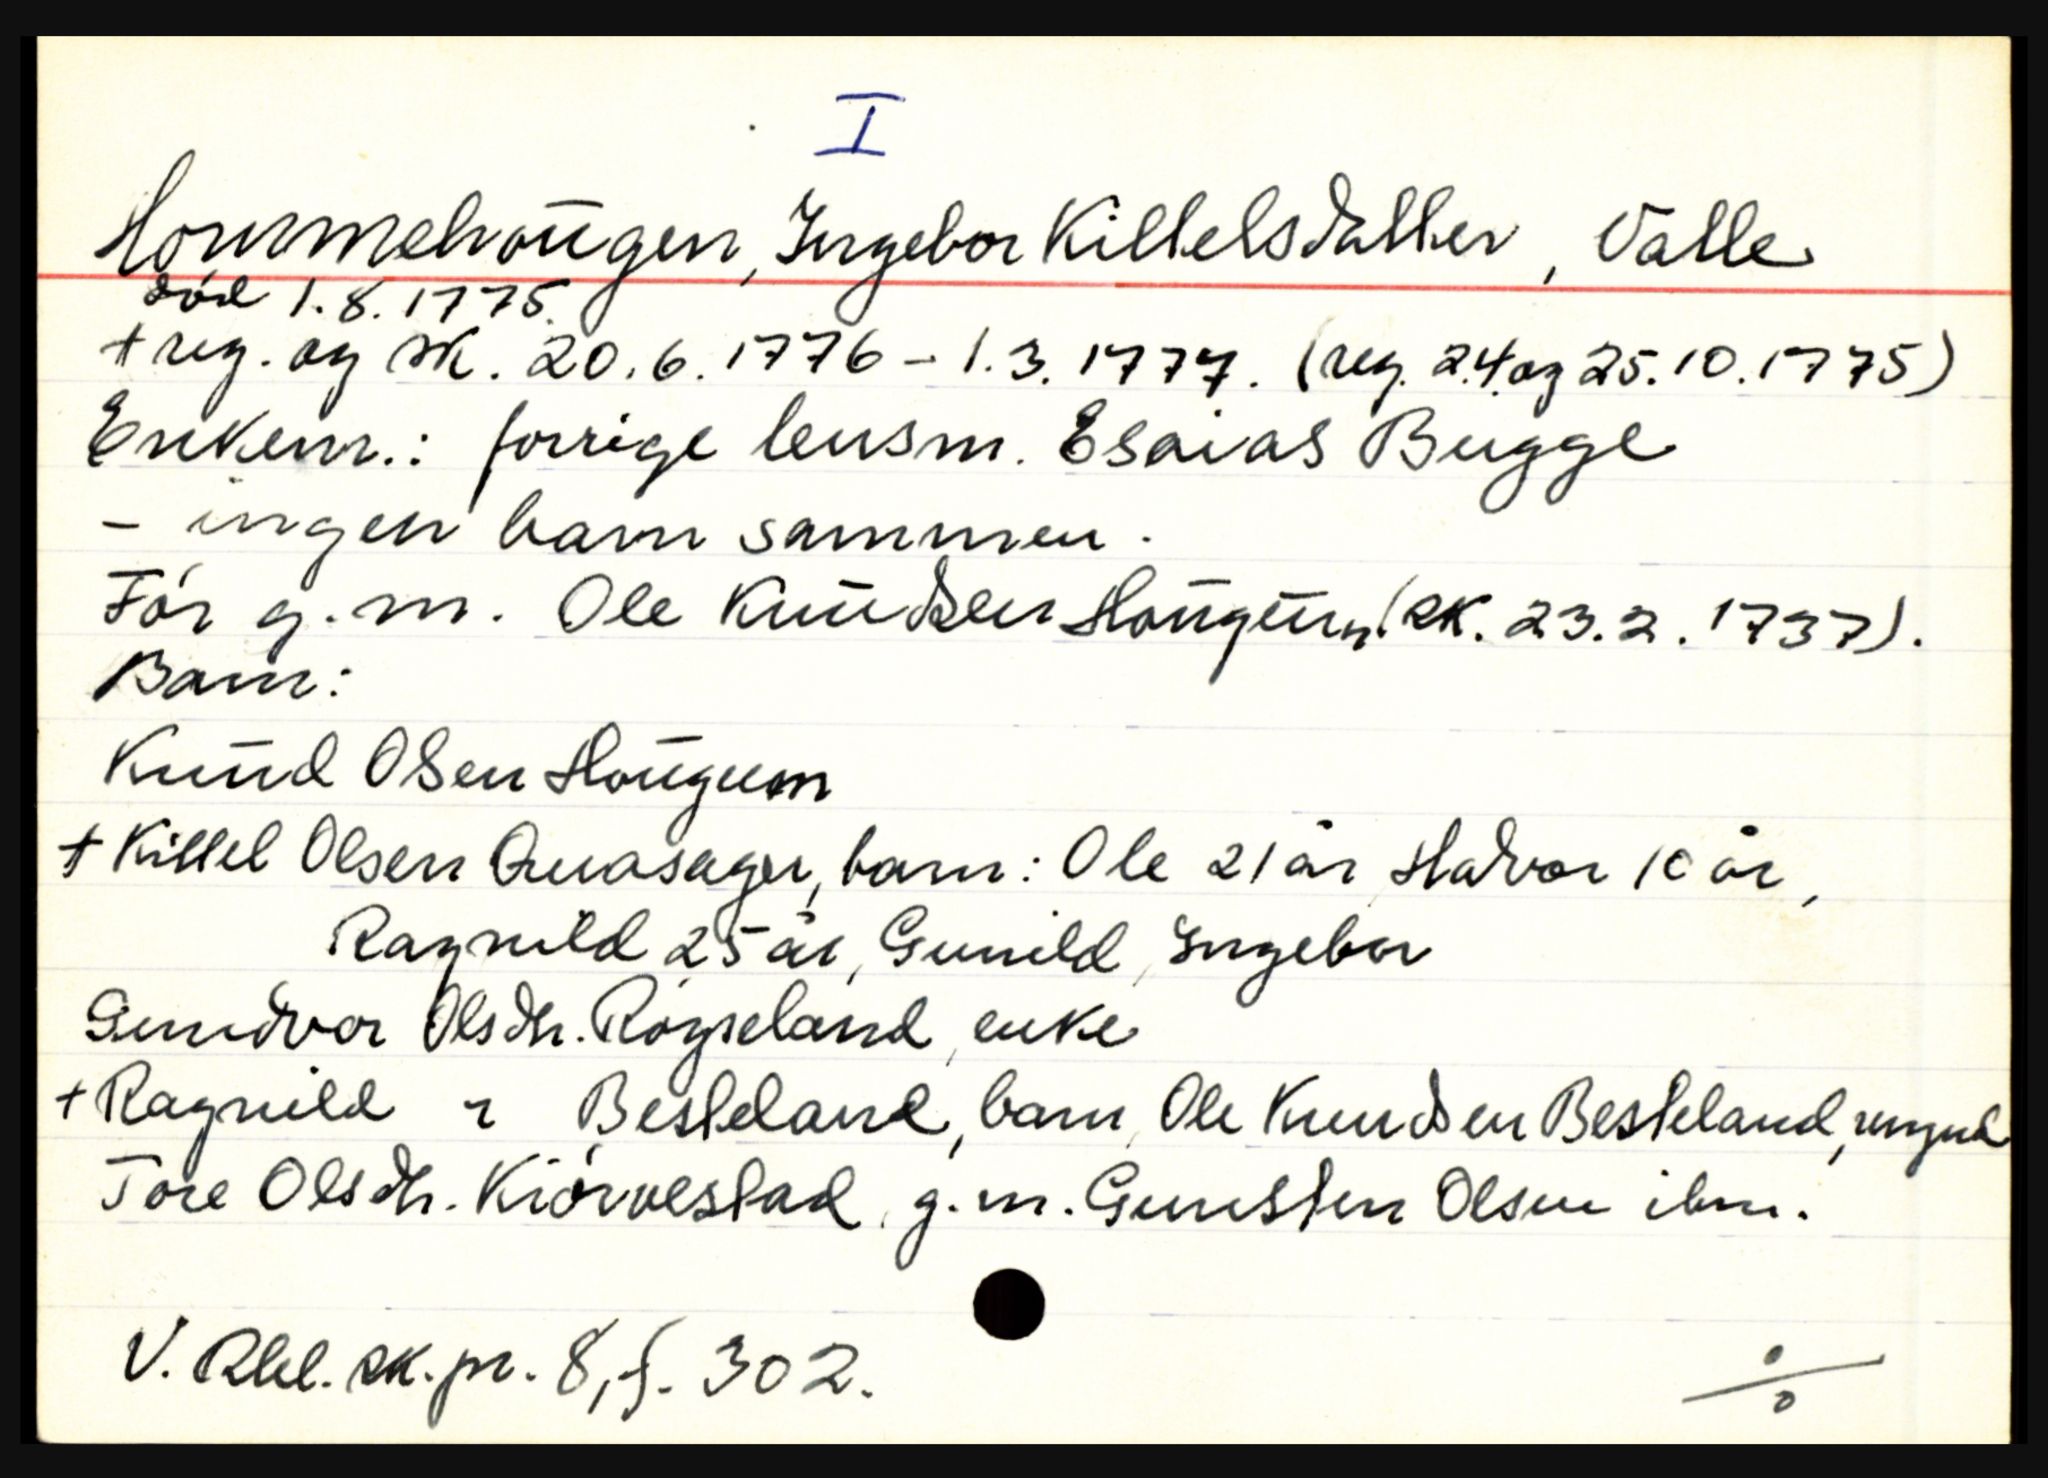 I
Hommehougen, Ingebor Kittelsdatter, Valle
død 1.8.1775.
+ reg. og sk. 20.6.1776 - 1.3.1777. (reg. 24. og 25.10.1775)
Enkem.: forrige lensm. Esaias Bugge
- ingen barn sammen.
Før g.m. Ole Knudsen Hougum (sk. 23.2.1737).
Barn:
Knud Olsen Hougum
+ Kittel Olsen Quasager, barn: Ole 21 år, Halvor 10 år,
Ragnild 25 år, Gunild, Ingebor
Gundvor Olsdtr. Røyseland, enke
+ Ragnild " Besteland, barn, Ole Knudsen Besteland, mynd
Tore Olsdtr. Kiørvestad, g.m. Gunsten Olsen ibm.
V. Rbl. sk.pr. 8, f. 302.